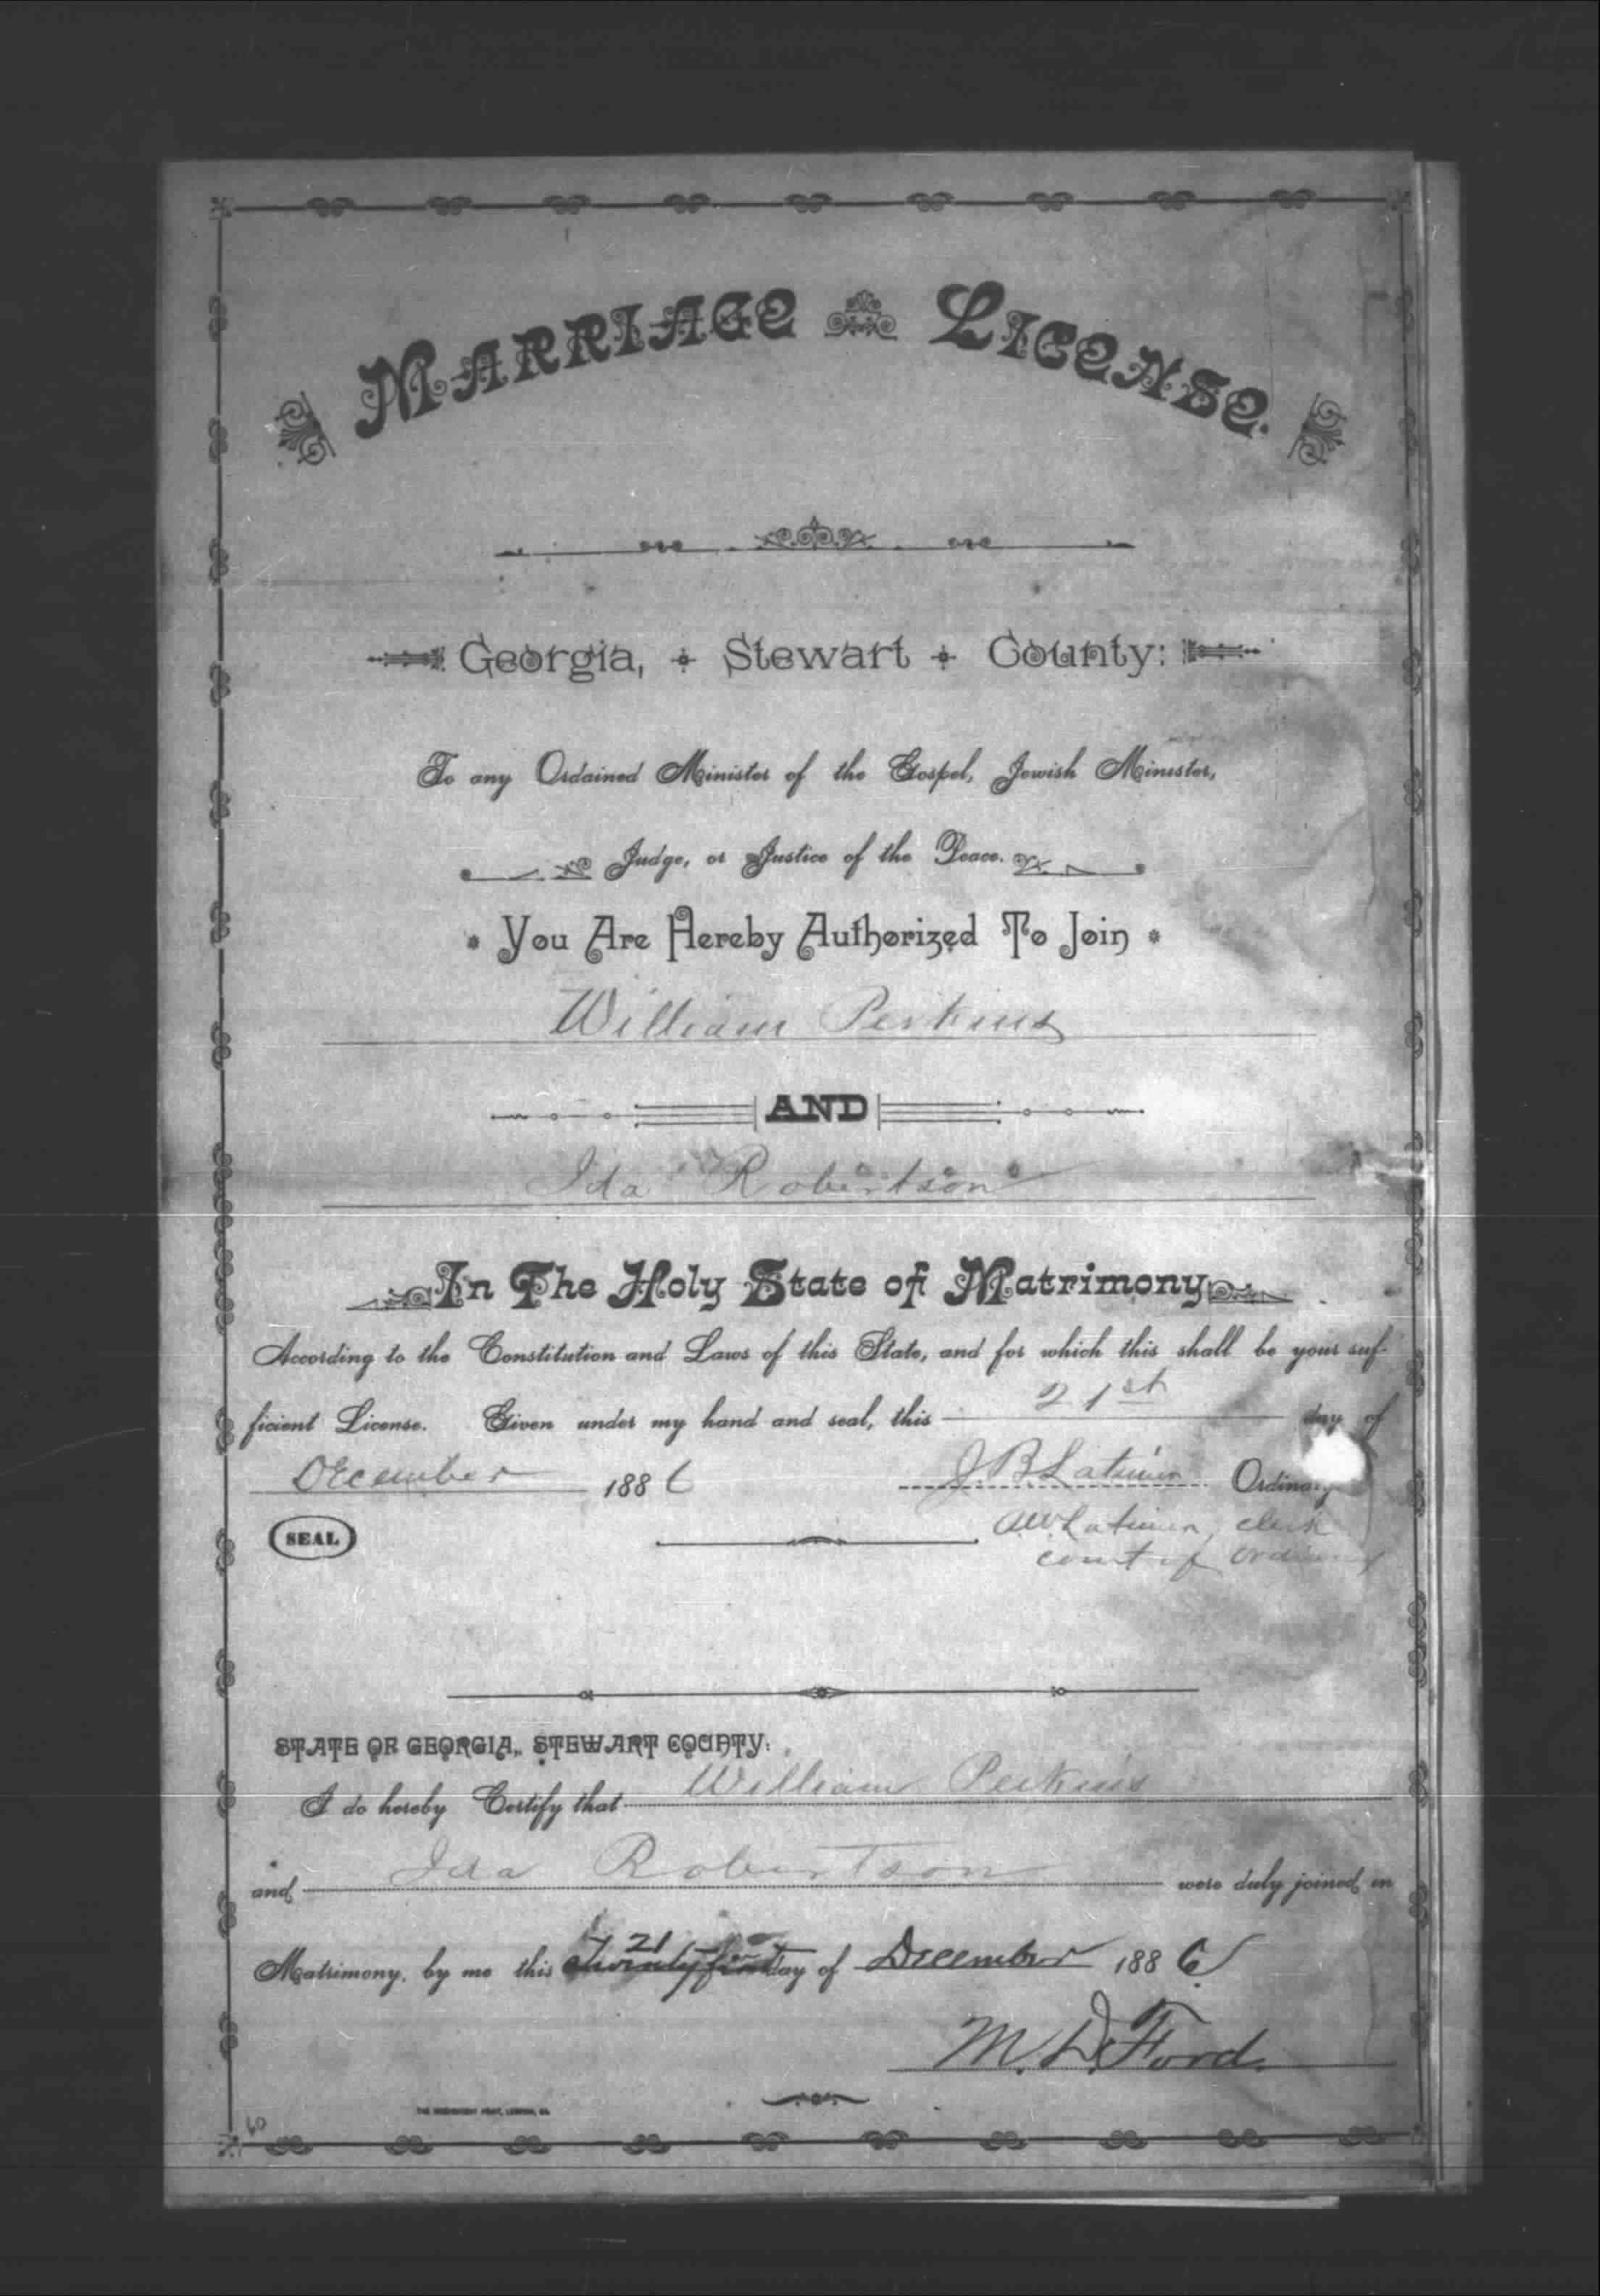 MARRIAGE LICENSE.
Georgia, Stewart County:
To any Ordained Minister of the Gospel, Jewish Minister,
Judge, or Justice of the Peace.
You Are Hereby Authorized To Join
William Perkins
AND
Ida Robertson
In The Holy State of Matrimony
According to the Constitution and Laws of this State, and for which this shall be your suf-
ficient License. Given under my hand and seal, this 21st day of
December 1886 J. B. Latimer Ordinary
SEAL
A W Latimer, clerk
court of Ordinary
STATE OF GEORGIA, STEWART COUNTY:
I do hereby Certify that William Perkins
and Ida Robertson were duly joined in
Matrimony, by me this 21 Twenty first day of December 1886
M. D. Ford.
60